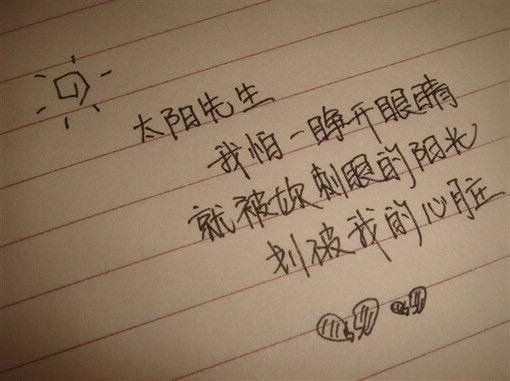 太阳先生
我怕一睁开眼睛
就被你刺眼的阳光
划被我的心脏